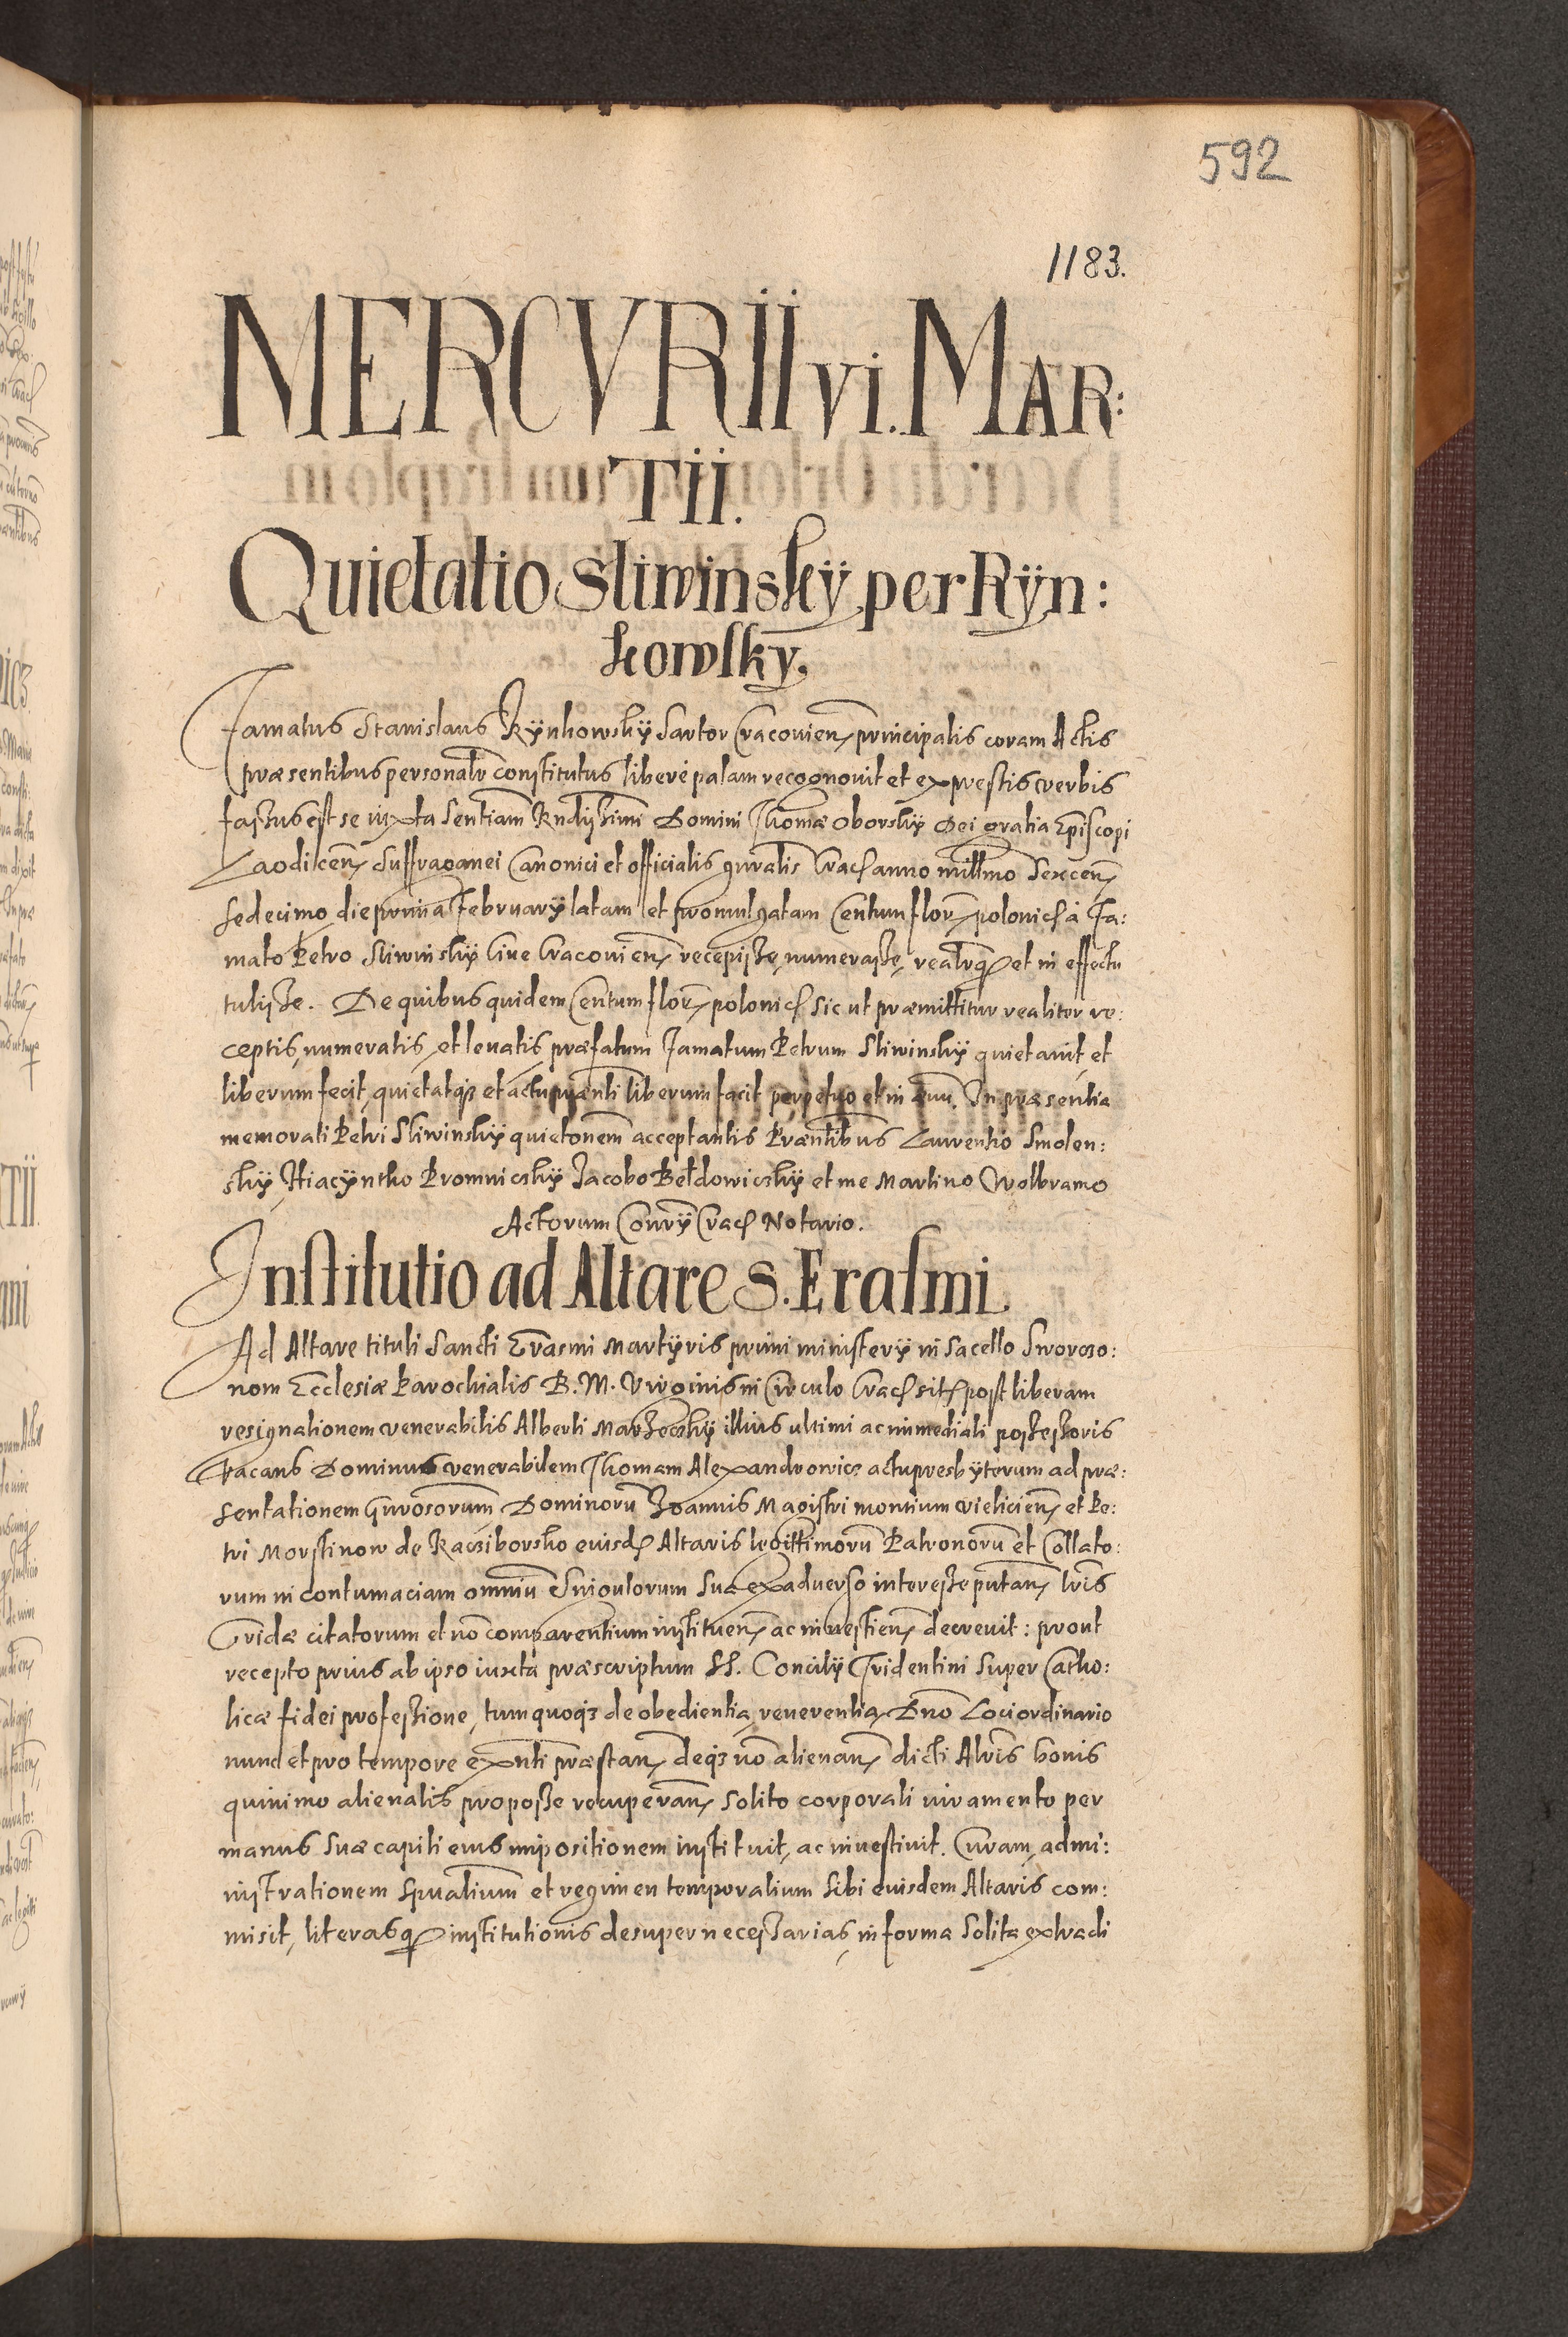 592
1183.
MERCVRII VI. MAR:
TII.
Quietatio Sliwinsky per Ryn:
kowsky.
Famatus Stanislaus Rynkowsky Sartor Cracovien principalis coram Actis
præsentibus personalr constitutus libere palam recognovit et expressis verbis
fassus est se iuxta Sentiam Rndissimi Domini Thomæ Oborsky Dei gratia Episcopi
Laodicen Suffraganei Canonici et officialis gnralis Crac anno millmo Sexcen
sedecimo die prima February latam et promulgatam Centum flor polonic à Fa:
mato Petro Sliwinsky Cive Cracovien recepisse, numerasse, realrq et in effectu
tulisse. De quibus quidem Centum flor polonic sic ut præmittitur realiter re:
ceptis, numeratis, et levatis præfatum Famatum Petrum Sliwinsky quietavit et
liberum fecit, quietatq3 et actu prænti liberum facit perpetuo et in ævu. In præsentia
memorati Petri Sliwinsky quietonem acceptantis Præntibus Laurentio Smolen:
sky Hiacyntho Promnicsky Jacobo Bełdowicsky et me Martino Wolbramo
Actorum Conrÿ Crac Notario.
Institutio ad Altare S. Erasmi.
Ad Altare tituli Sancti Erasmi Martyris primi ministery in Sacello Sworczo:
nom Ecclesiæ Parochialis B. M. Virginis in Circulo Crac sit post liberam
resignationem venerabilis Alberti Marsecsky illius ultimi ac immediati possessoris
vacans Dominus venerabilem Thomam Alexandrowicz actu presbyterum ad præ:
sentationem Gnrosorum Dominoru Joannis Magistri montium vielicien et Pe:
tri Morstinow de Raciborsko eiusd Altaris legittimoru Patronoru et Collato:
rum in contumaciam omniu Singulorum sua ex adverso interesse putan lris
Cridæ citatorum et no comparentium instituen ac investien decrevit: prout
recepto prius ab ipso iuxta præscriptum SS. Concily Tridentini super Catho:
licæ fidei professione, tum quoq3 de obedientia, reverentia, Dno Loci ordinario
nunc et pro tempore exnti præstan deq3 no alienan dicti Alris bonis
quinimo alienatis pro posse recuperan solito corporali iuramento per
manus suæ capiti eius impositionem instituit, ac investivit. Curam, admi:
nistrationem spualium et regimen temporalium sibi eiusdem Altaris com:
misit, literasq institutionis desuper necessarias, in forma solita extradi